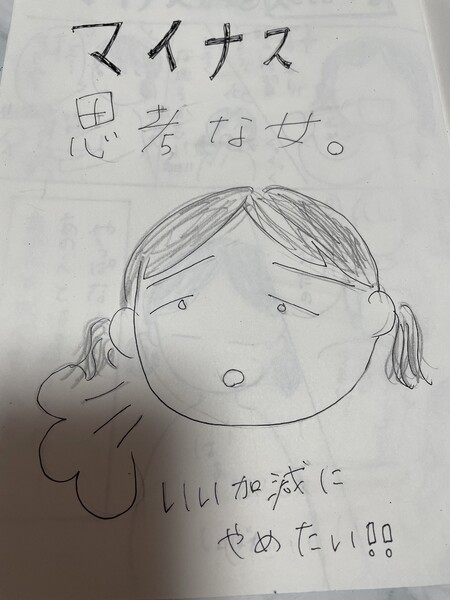 マイナス
思考な女。
いい加減に
やめたい!!